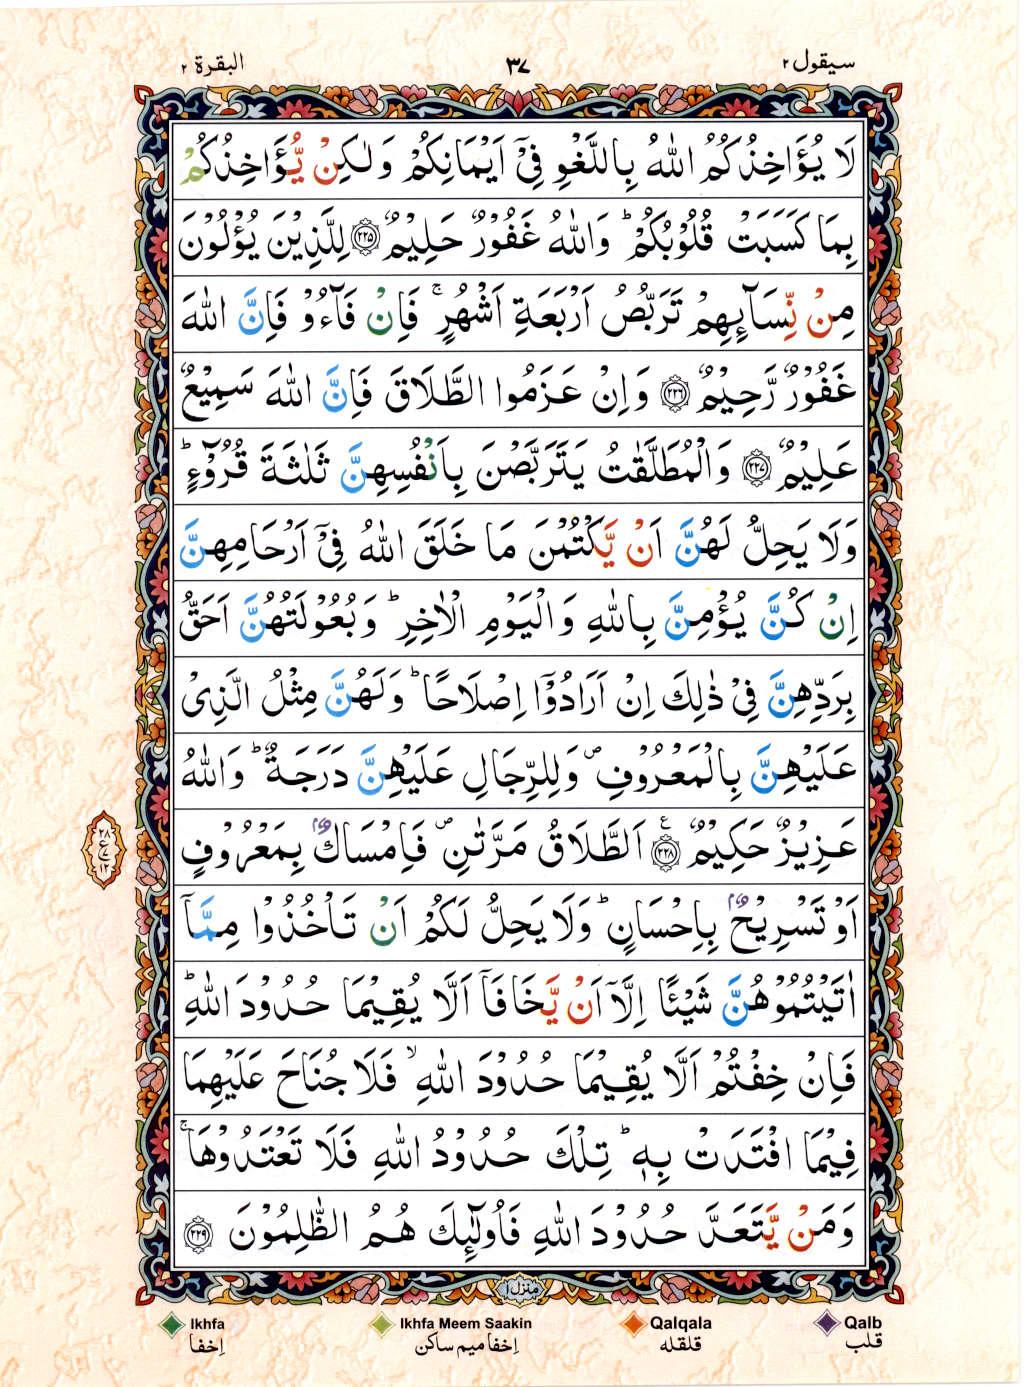 سيقول ٢
٣٧
البقرة ٢
لَا يُؤَاخِذُكُمُ اللّٰهُ بِاللَّغْوِ فِيْٓ اَيْمَانِكُمْ وَلٰكِنْ يُّؤَاخِذُكُمْ
بِمَا كَسَبَتْ قُلُوْبُكُمْ ؕ وَاللّٰهُ غَفُوْرٌ حَلِيْمٌ ﴿۲۲۵﴾ لِلَّذِيْنَ يُؤْلُوْنَ
مِنْ نِّسَآئِهِمْ تَرَبُّصُ اَرْبَعَةِ اَشْهُرٍ ۚ فَاِنْ فَآءُوْ فَاِنَّ اللّٰهَ
غَفُوْرٌ رَّحِيْمٌ ﴿۲۲۶﴾ وَاِنْ عَزَمُوا الطَّلَاقَ فَاِنَّ اللّٰهَ سَمِيْعٌ
عَلِيْمٌ ﴿۲۲۷﴾ وَالْمُطَلَّقٰتُ يَتَرَبَّصْنَ بِاَنْفُسِهِنَّ ثَلٰثَةَ قُرُوْٓءٍ ؕ
وَلَا يَحِلُّ لَهُنَّ اَنْ يَّكْتُمْنَ مَا خَلَقَ اللّٰهُ فِيْٓ اَرْحَامِهِنَّ
اِنْ كُنَّ يُؤْمِنَّ بِاللّٰهِ وَالْيَوْمِ الْاٰخِرِ ؕ وَبُعُوْلَتُهُنَّ اَحَقُّ
بِرَدِّهِنَّ فِيْ ذٰلِكَ اِنْ اَرَادُوْٓا اِصْلَاحًا ؕ وَلَهُنَّ مِثْلُ الَّذِيْ
عَلَيْهِنَّ بِالْمَعْرُوْفِ ۪ وَلِلرِّجَالِ عَلَيْهِنَّ دَرَجَةٌ ؕ وَاللّٰهُ
عَزِيْزٌ حَكِيْمٌ ﴿۲۲۸﴾ اَلطَّلَاقُ مَرَّتٰنِ ۪ فَاِمْسَاكٌۢ بِمَعْرُوْفٍ
٢٨
ع
١٢
اَوْ تَسْرِيْحٌۢ بِاِحْسَانٍ ؕ وَلَا يَحِلُّ لَكُمْ اَنْ تَاْخُذُوْا مِمَّآ
اٰتَيْتُمُوْهُنَّ شَيْئًا اِلَّآ اَنْ يَّخَافَآ اَلَّا يُقِيْمَا حُدُوْدَ اللّٰهِ ؕ
فَاِنْ خِفْتُمْ اَلَّا يُقِيْمَا حُدُوْدَ اللّٰهِ ۙ فَلَا جُنَاحَ عَلَيْهِمَا
فِيْمَا افْتَدَتْ بِهٖ ؕ تِلْكَ حُدُوْدُ اللّٰهِ فَلَا تَعْتَدُوْهَا ۚ
وَمَنْ يَّتَعَدَّ حُدُوْدَ اللّٰهِ فَاُولٰٓئِكَ هُمُ الظّٰلِمُوْنَ ﴿۲۲۹﴾
منزل ١
Ikhfa
اِخفا
Ikhfa Meem Saakin
اِخفا ميم ساكن
Qalqala
قلقله
Qalb
قلب